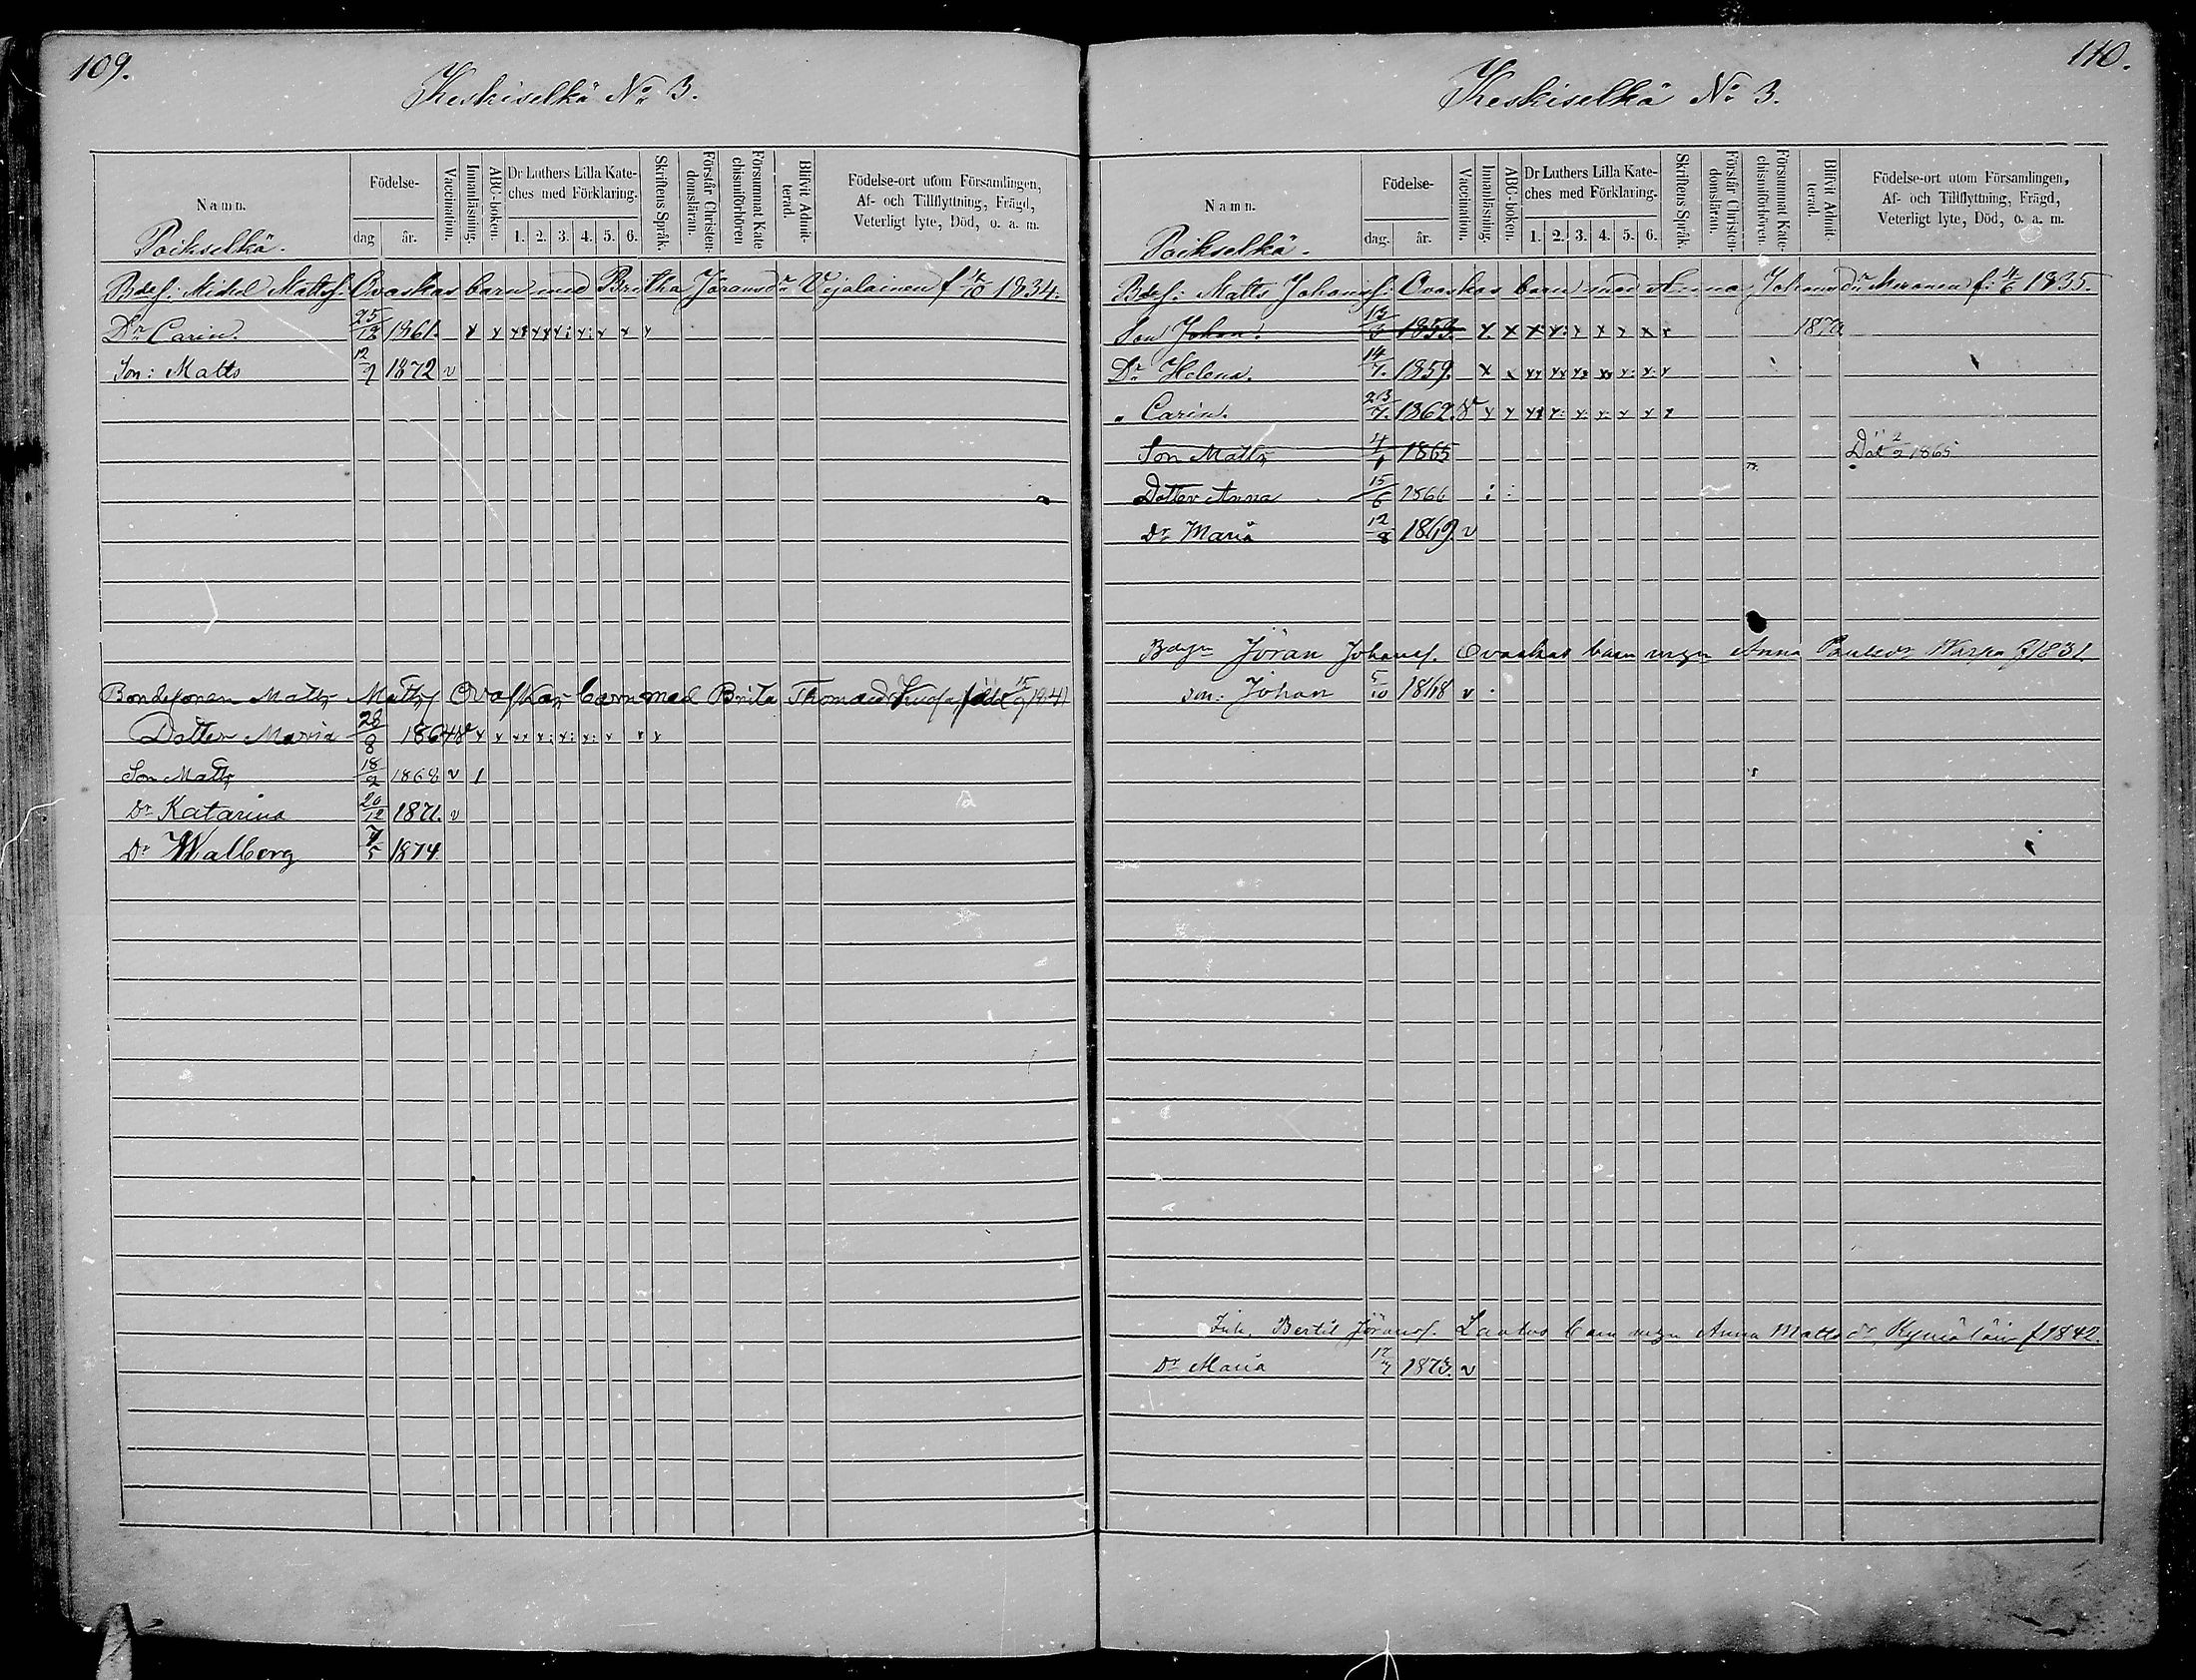 109.
Keskiselkä No 3.
Namn.
Födelse-
dag
år.
Vaccination.
Innanläsning.
ABC-boken.
Dr Luthers Lilla Kate-
ches med Förklaring.
1. 2. 3. 4. 5. 6.
Skriftens Språk.
Förstår Christen-
domsläran.
Försummat Kate-
chismiförhören
Blifvit Admit-
terad.
Födelse-ort utom Församlingen,
Af- och Tillflyttning, Frägd,
Veterligt lyte, Död, o. a. m.
Poikselkä.
Bdes: Michel Mattss: Ovaskas barn med Britha Jöransdr f 1834.
Dr Carin. 25/12 1861. x x
Son: Matts 12/9 1872 v
Bondesonen Matts Mattss Ovaskas barn med Brita Thomasd född 15/9 1841
Dotter Maria 28/8 1864 v x x
Son Matts 18/2 1868 v 1
Dr Katarina 20/12 1871. v
Dr Walberg 7/5 1874
110.
Keskiselkä No 3.
Namn.
Födelse-
dag.
år.
Vaccination.
Innanläsning.
ABC-boken.
Dr Luthers Lilla Kate-
ches med Förklaring.
1. 2. 3. 4. 5. 6.
Skriftens Språk.
Förstår Christen-
domsläran.
Försummat Kate-
chismiförhören.
Blifvit Admit-
terad.
Födelse-ort utom Församlingen,
Af- och Tillflyttning, Frägd,
Veterligt lyte, Död, o. a. m.
Poikselkä.
Bdes: Matts Johanss: Ovaskas barn med Anna Johansdr Meranen f: 4/6 1835.
Son Johan. 13/3 1853. x x 1870
Dr Helena. 14/7. 1859. x x
" Carin. 23/7. 1862. v x x
Son Matts 4/1 1865 Död 2/2 1865
Dotter Anna 15/6 1866
Dr Maria 12/8 1869. v
Jöran Johanss. Ovaskas barn Anna Paulsdr f 1831.
son: Johan 5/10 1868 v
Inh. Bertil Jöranss. Laatus barn Anna Mattsdr f 1842.
Dr Maria 17/7 1873. v